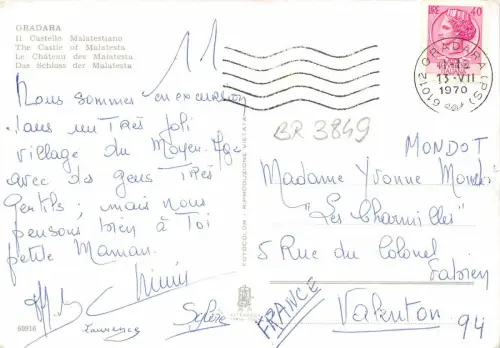 GRADARA
Il Castello Malatestiano
The Castle of Malatesta
Le Château des Malatesta
Das Schloss der Malatesta
11
Nous sommes en excursion
dans un TRES joli
village du Moyen-Age
avec des gens TRES
gentils ; mais nous
pensons bien à Toi
petite Maman.
Laurence
60916
FOTOCOLOR - RIPRODUZIONE VIETATA
LIRE 40
61012 GRADARA (PS)
13-VII
1970
BR 3849
MONDOT
Madame Yvonne
"Les Charmilles"
5 Rue du Colonel
Fabien
Valenton
94
FRANCE